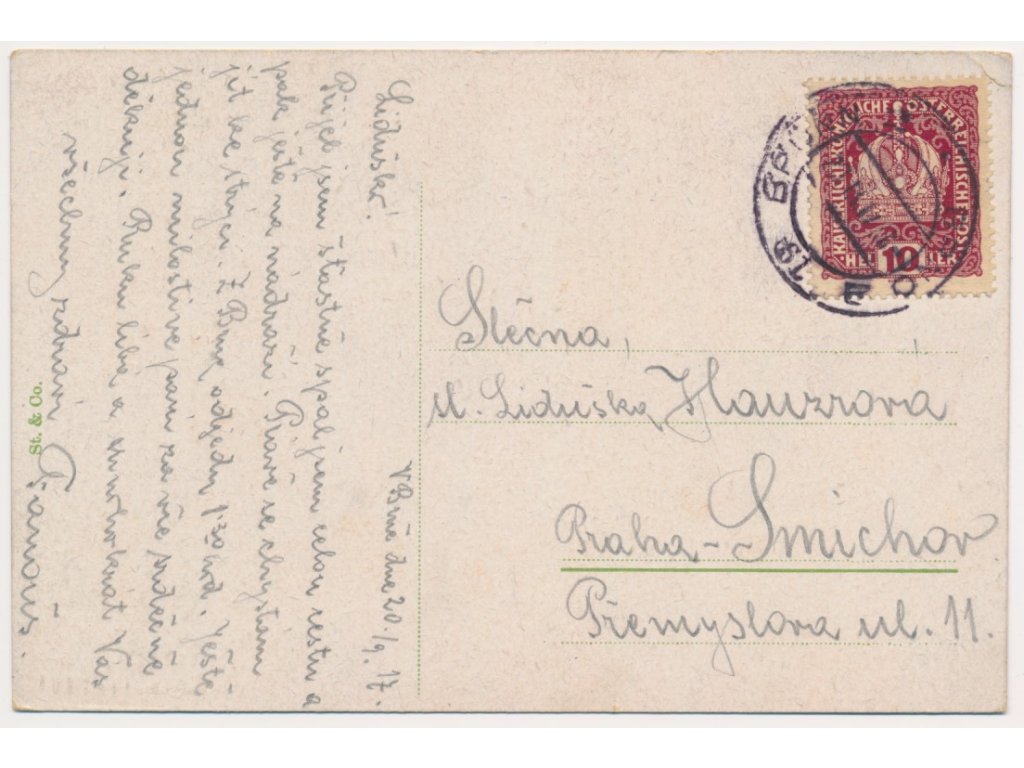 Liduško!
V Brně dne 20/9. 17.
Přijel jsem šťastně spal jsem celou cestu a
pak ještě na nádraží. Právě se chystám
jít ke strýci. Z Brna odjedu 1·30 hod. Ještě
jednou milostivé paní za vše srdečně
děkuji. Ruku líbá a Vás
všechny zdraví
St. & Co.
KAISERLICHE KÖNIGLICHE ÖSTERREICHISCHE POST
HELLER
10
BRÜNN
Slečna,
sl. Liduška Hauzrova
Praha-Smichov
Přemyslova ul. 11.